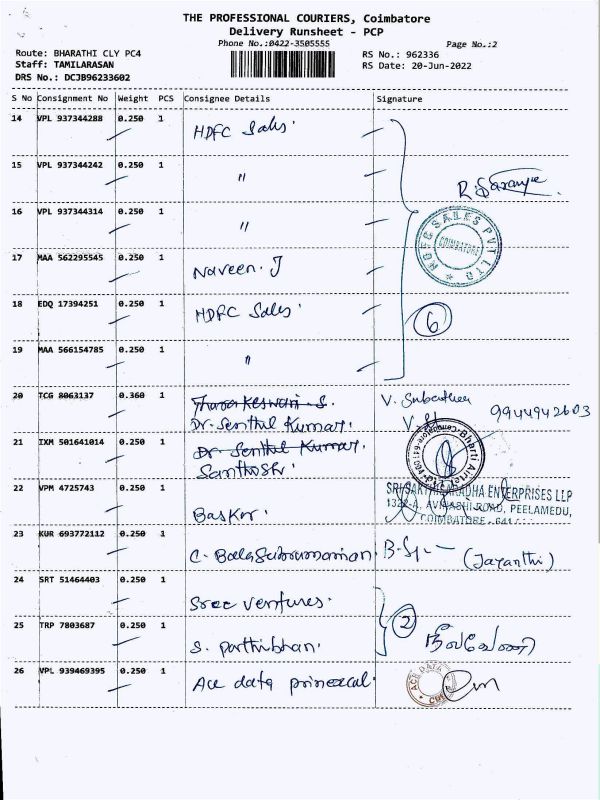 THE PROFESSIONAL COURIERS, Coimbatore
Delivery Runsheet - PCP
Phone No.:0422-3505555
Page No.:2
Route: BHARATHI CLY PC4
RS No.: 962336
Staff: TAMILARASAN
RS Date: 20-Jun-2022
DRS No.: DCJB96233602
S No Consignment No Weight PCS Consignee Details Signature
14 VPL 937344288 0.250 1 HDFC Sales
15 VPL 937344242 0.250 1 "
R. Saranya
16 VPL 937344314 0.250 1 "
HDFC SALES PVT LTD
COIMBATORE
17 MAA 562295545 0.250 1 Naveen. J
18 EDQ 17394251 0.250 1 HDFC Sales
6
19 MAA 566154785 0.250 1 "
20 TCG 8063137 0.360 1
Dr. Senthil Kumar.
V.
9944942603
21 IXM 501641014 0.250 1 Dr. Senthil Kumar.
Santhosh.
Bharti Airtel Ltd
22 VPM 4725743 0.250 1 Baskar.
SRI SAKTHI SARADHA ENTERPRISES LLP
1322-A, AVINASHI ROAD, PEELAMEDU,
COIMBATORE - 641
23 KUR 693772112 0.250 1 C. Balasubramanian.
(Jayanthi)
24 SRT 51464403 0.250 1 Sree ventures.
2
25 TRP 7803687 0.250 1 S. Parthibhan.
நீலவேணி
26 VPL 939469395 0.250 1 Ace data
ACE DATA